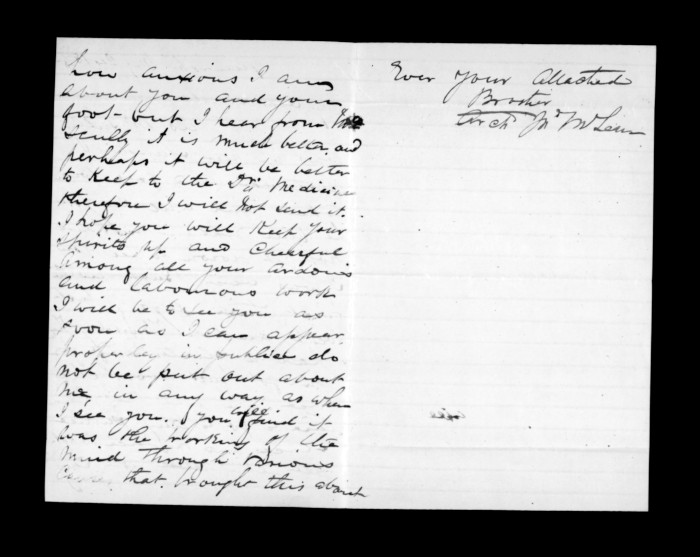 how anxious I am
about you and your
foot - but I hear from
Scully it is much better and
perhaps it will be better
to Keep to the Drs Medicine
therefore I will not send it.
I hope you will Keep your
spirits up and cheerful
among all your arduous
and labourious work
I will be to see you as
soon as I can appear
properley in publice do
not be put out about
me in any way as when
I see you. you will find it
was the working of the
mind through various
that brought this about
Ever your attached
Brother
Archd McLean